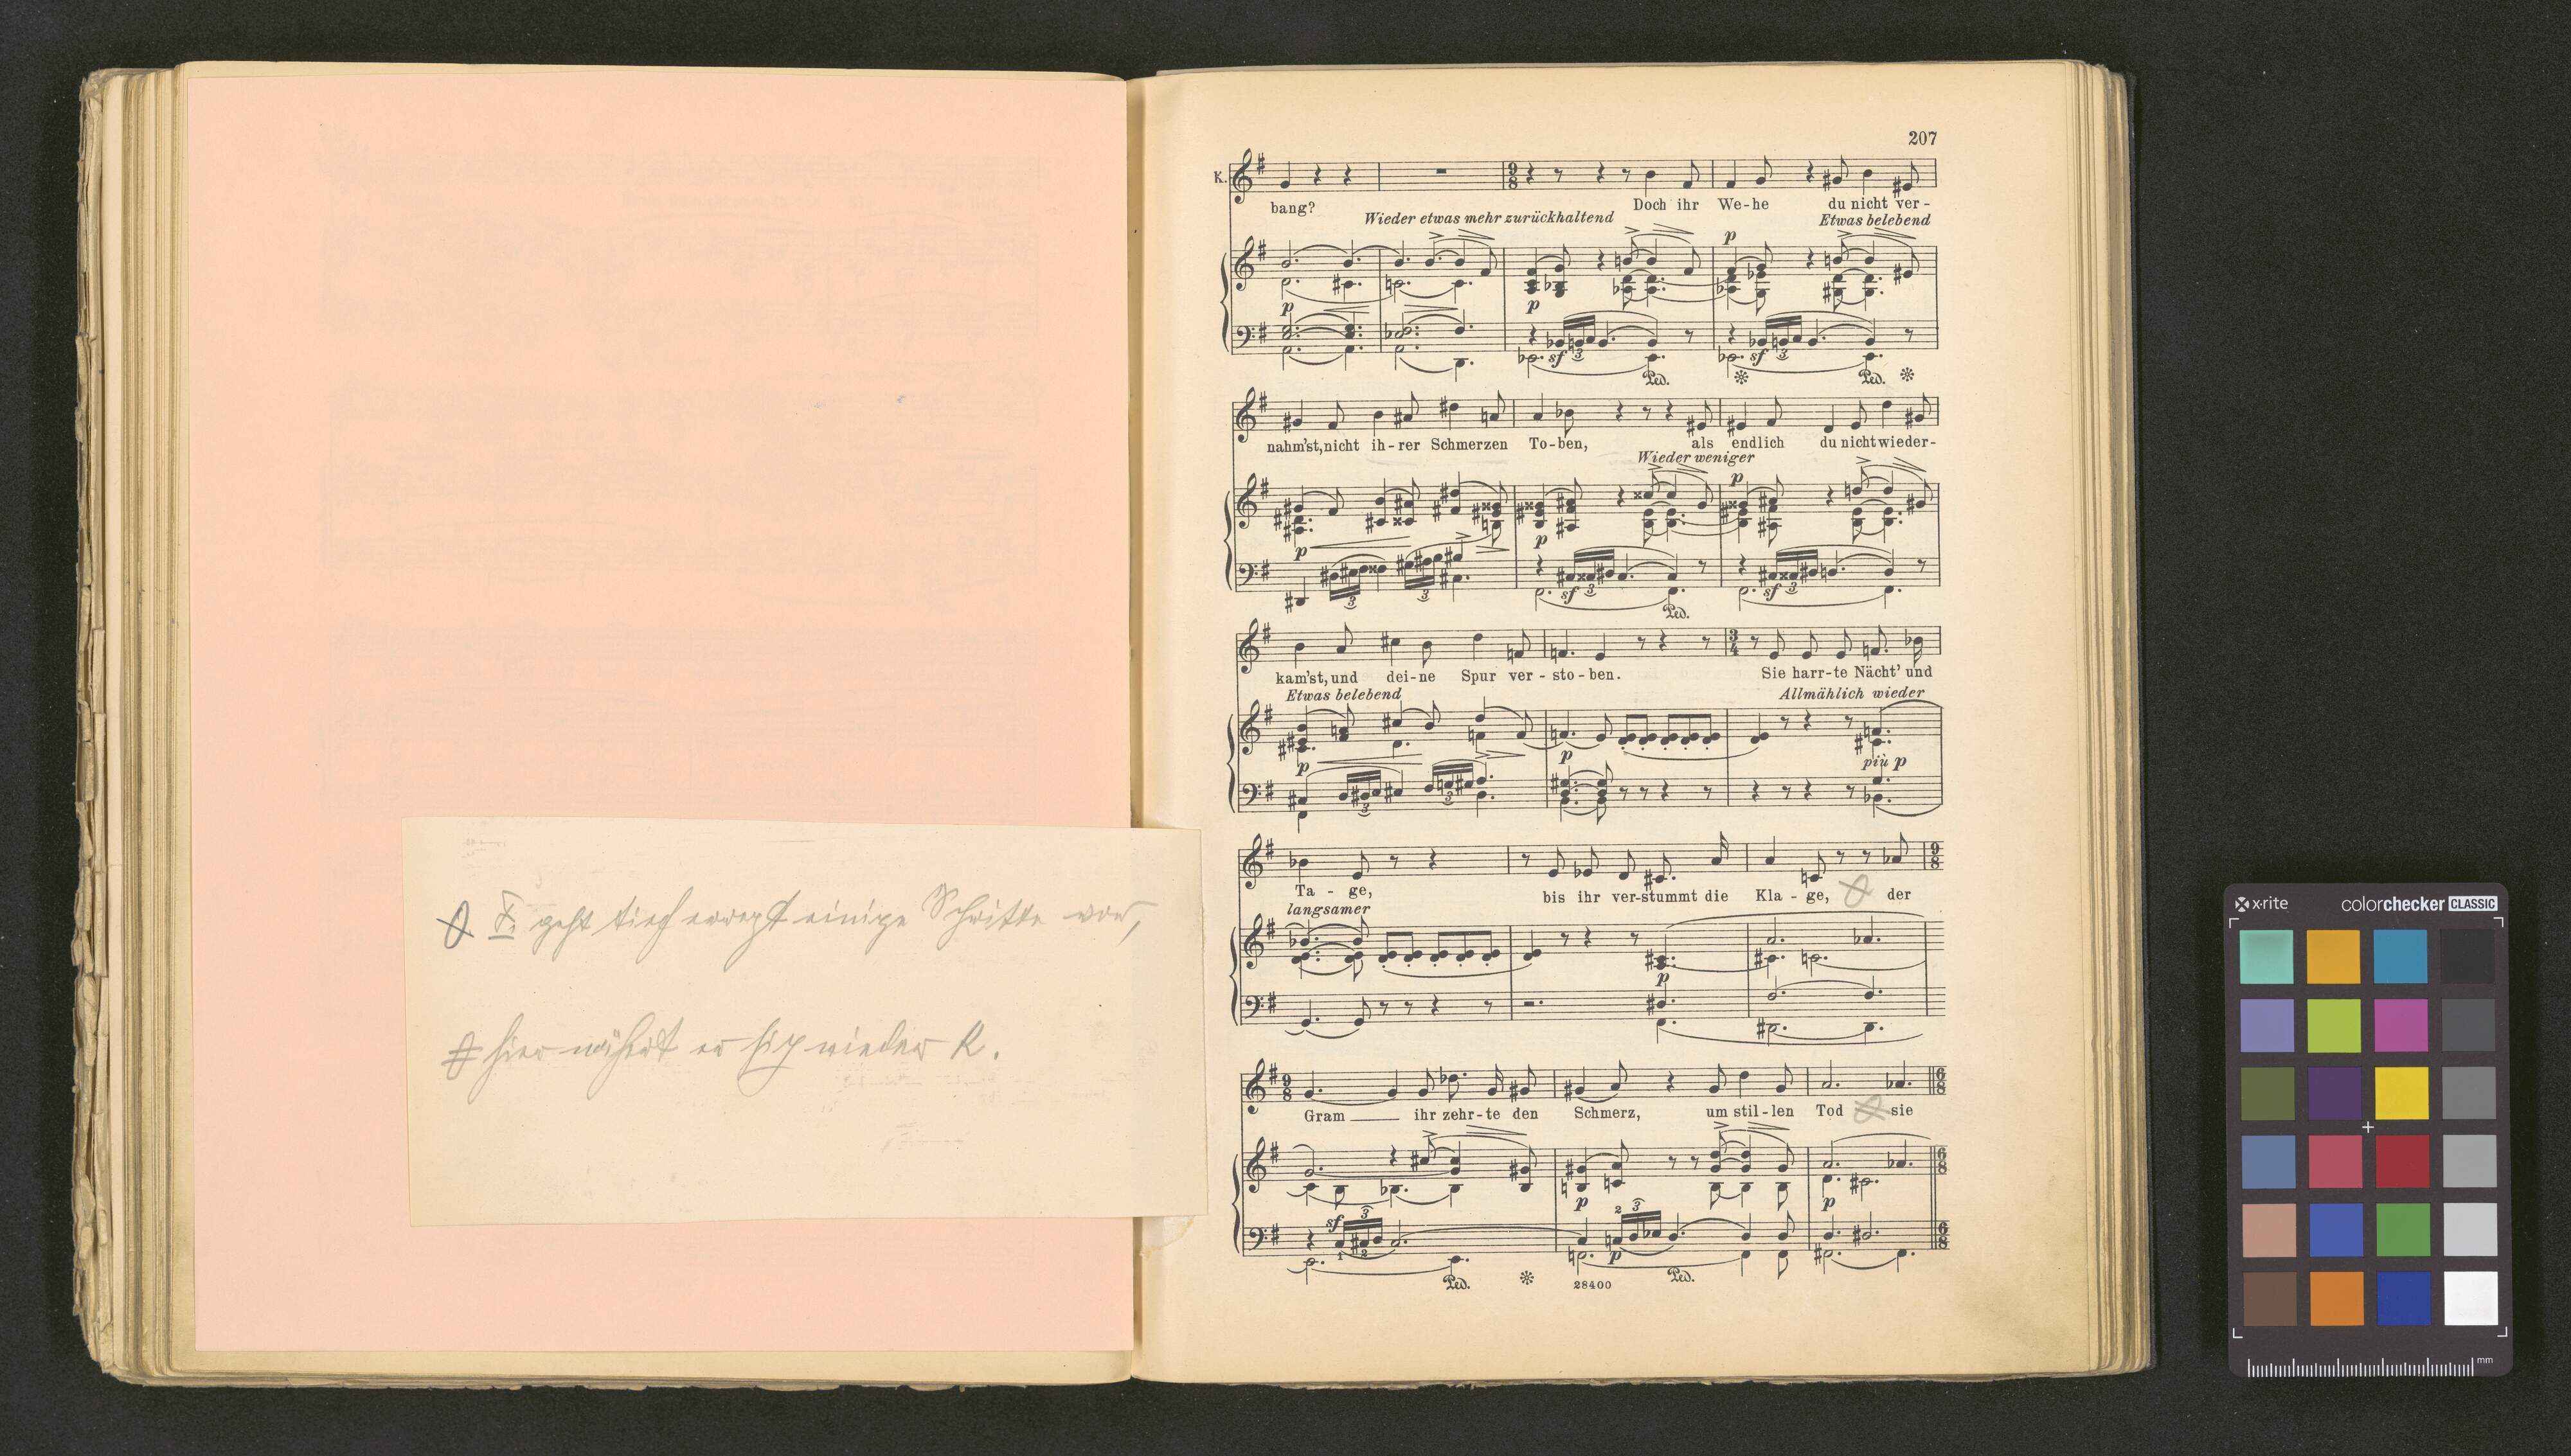 P. geht tief erregt einige Schritte vor,
hier nähert er sich wieder K.
207
K.
bang? Doch ihr We-he du nicht ver-
Wieder etwas mehr zurückhaltend Etwas belebend
p
p p
sf 3 sf 3
Ped. Ped.
nahm'st, nicht ih-rer Schmerzen To-ben, als endlich du nicht wieder-
Wieder weniger
p
p p
3 3 sf 3 sf 3
Ped.
kam'st, und dei-ne Spur ver-sto-ben. Sie harr-te Nächt' und
Etwas belebend Allmählich wieder
p p più p
3 3
Ta-ge, bis ihr ver-stummt die Kla-ge, der
langsamer
p
Gram ihr zehr-te den Schmerz, um stil-len Tod sie
sf 3 p 2 3 p
1 2 p
Ped. 28400 Ped.
x-rite colorchecker CLASSIC
mm